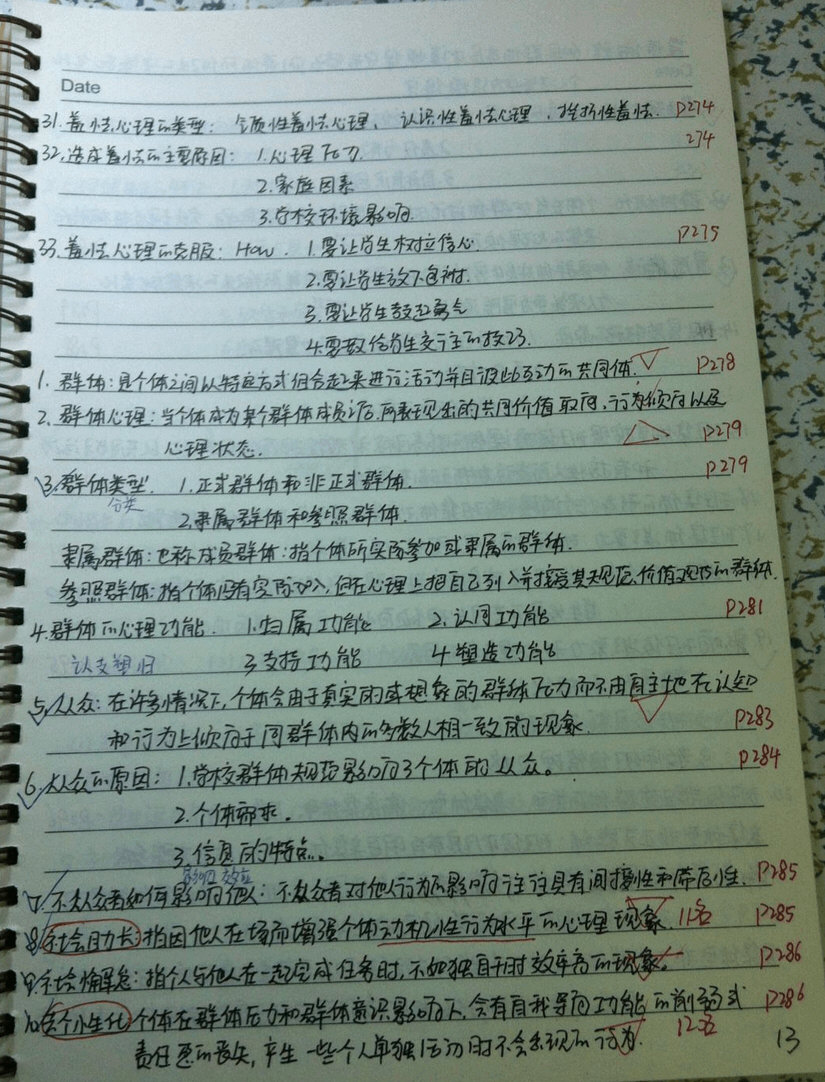 Date
31. 羞怯心理的类型: 气质性羞怯心理、认识性羞怯心理、挫折性羞怯. P274
32. 造成羞怯的主要原因: 1.心理压力. 274
2.家庭因素
3.学校环境影响.
33. 羞怯心理的克服: How. 1.要让学生树立信心. P275
2.要让学生放下包袱.
3.要让学生鼓起勇气
4.要教给学生交往的技巧.
1. 群体: 是个体之间以特定方式组合起来进行活动并且彼此互动的共同体. P278
2. 群体心理: 当个体成为某个群体成员之后, 所表现出的共同价值取向, 行为倾向以及
心理状态. P279
3. 群体类型. 1.正式群体和非正式群体. P279
分类
2.隶属群体和参照群体.
隶属群体: 也称成员群体: 指个体所实际参加或隶属的群体.
参照群体: 指个体没有实际加入, 但在心理上把自己列入并接受其规范、价值观的群体.
4. 群体的心理功能. 1.归属功能 2.认同功能 P281
认支塑归 3.支持功能 4.塑造功能
5. 从众: 在许多情况下, 个体会由于真实的或想象的群体压力而不由自主地在认知
和行为上倾向于同群体内的多数人相一致的现象. P283
6. 从众的原因: 1.学校群体规范影响了个体的从众。 P284
2.个体需求。
3.信息的特点。
影响 效应
7. 不从众者如何影响他人: 不从众者对他人行为的影响往往具有间接性和滞后性. P285
8. 社会助长: 指因他人在场而增强个体动机性行为水平的心理现象. 11名 P285
9. 社会懈怠: 指个人与他人在一起完成任务时, 不如独自干时效率高的现象。 P286
10. 去个性化: 个体在群体压力和群体意识影响下, 会有自我导向功能的削弱或 P286
责任感的丧失, 产生一些个人单独活动时不会出现的行为. 12名
13